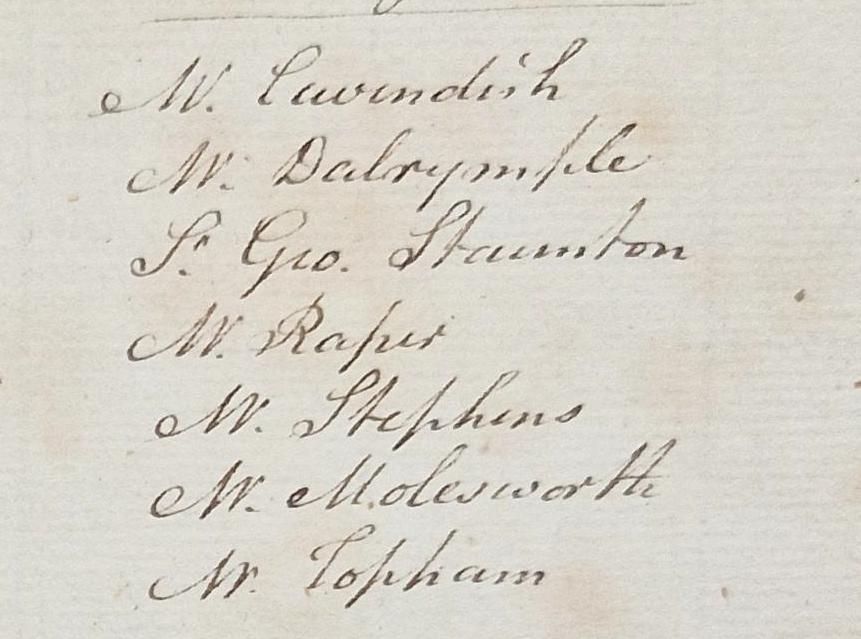 Mr. Cavendish
Mr. Dalrymple
Sr. Geo. Staunton
Mr. Raper
Mr. Stephens
Mr. Molesworth
Mr. Topham